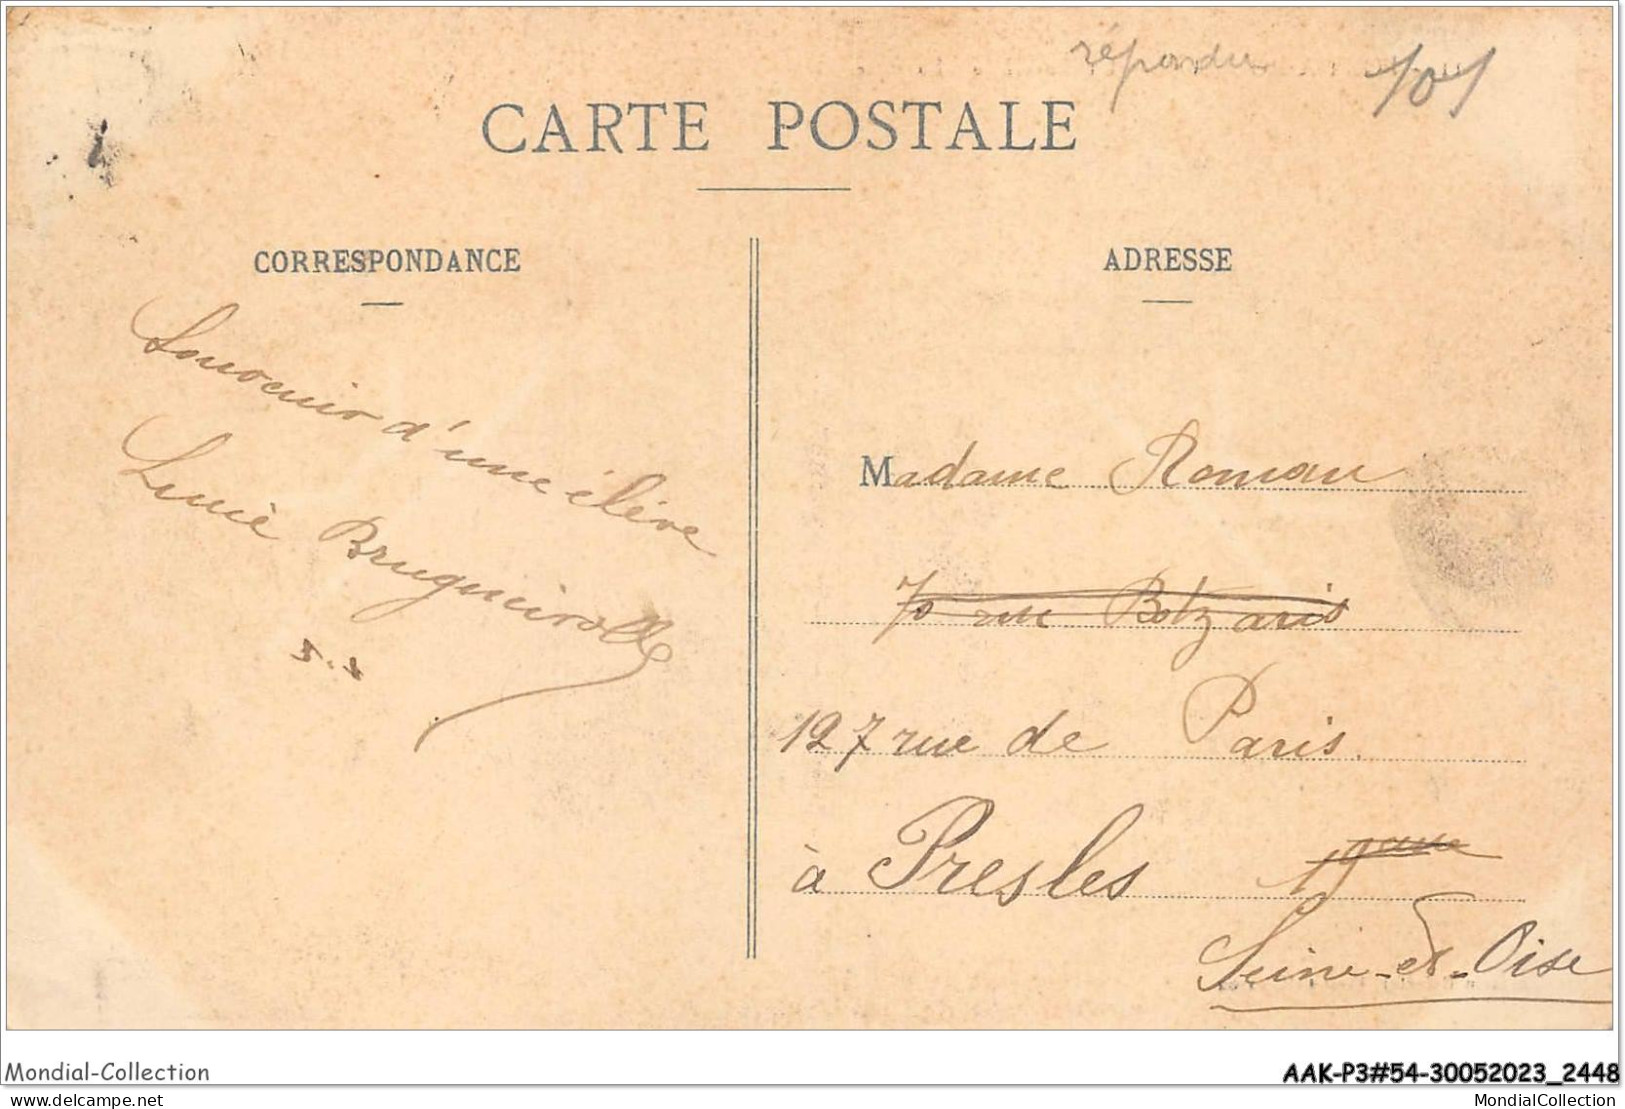 répondu
CARTE POSTALE
CORRESPONDANCE
ADRESSE
Souvenir d'une élève
Lucie Brugueirolle
Madame Roman
70 rue Botzaris
127 rue de Paris.
à Presles
Seine-et-Oise
Mondial-Collection
AAK-P3#54-30052023_2448
delcampe.net
MondialCollection